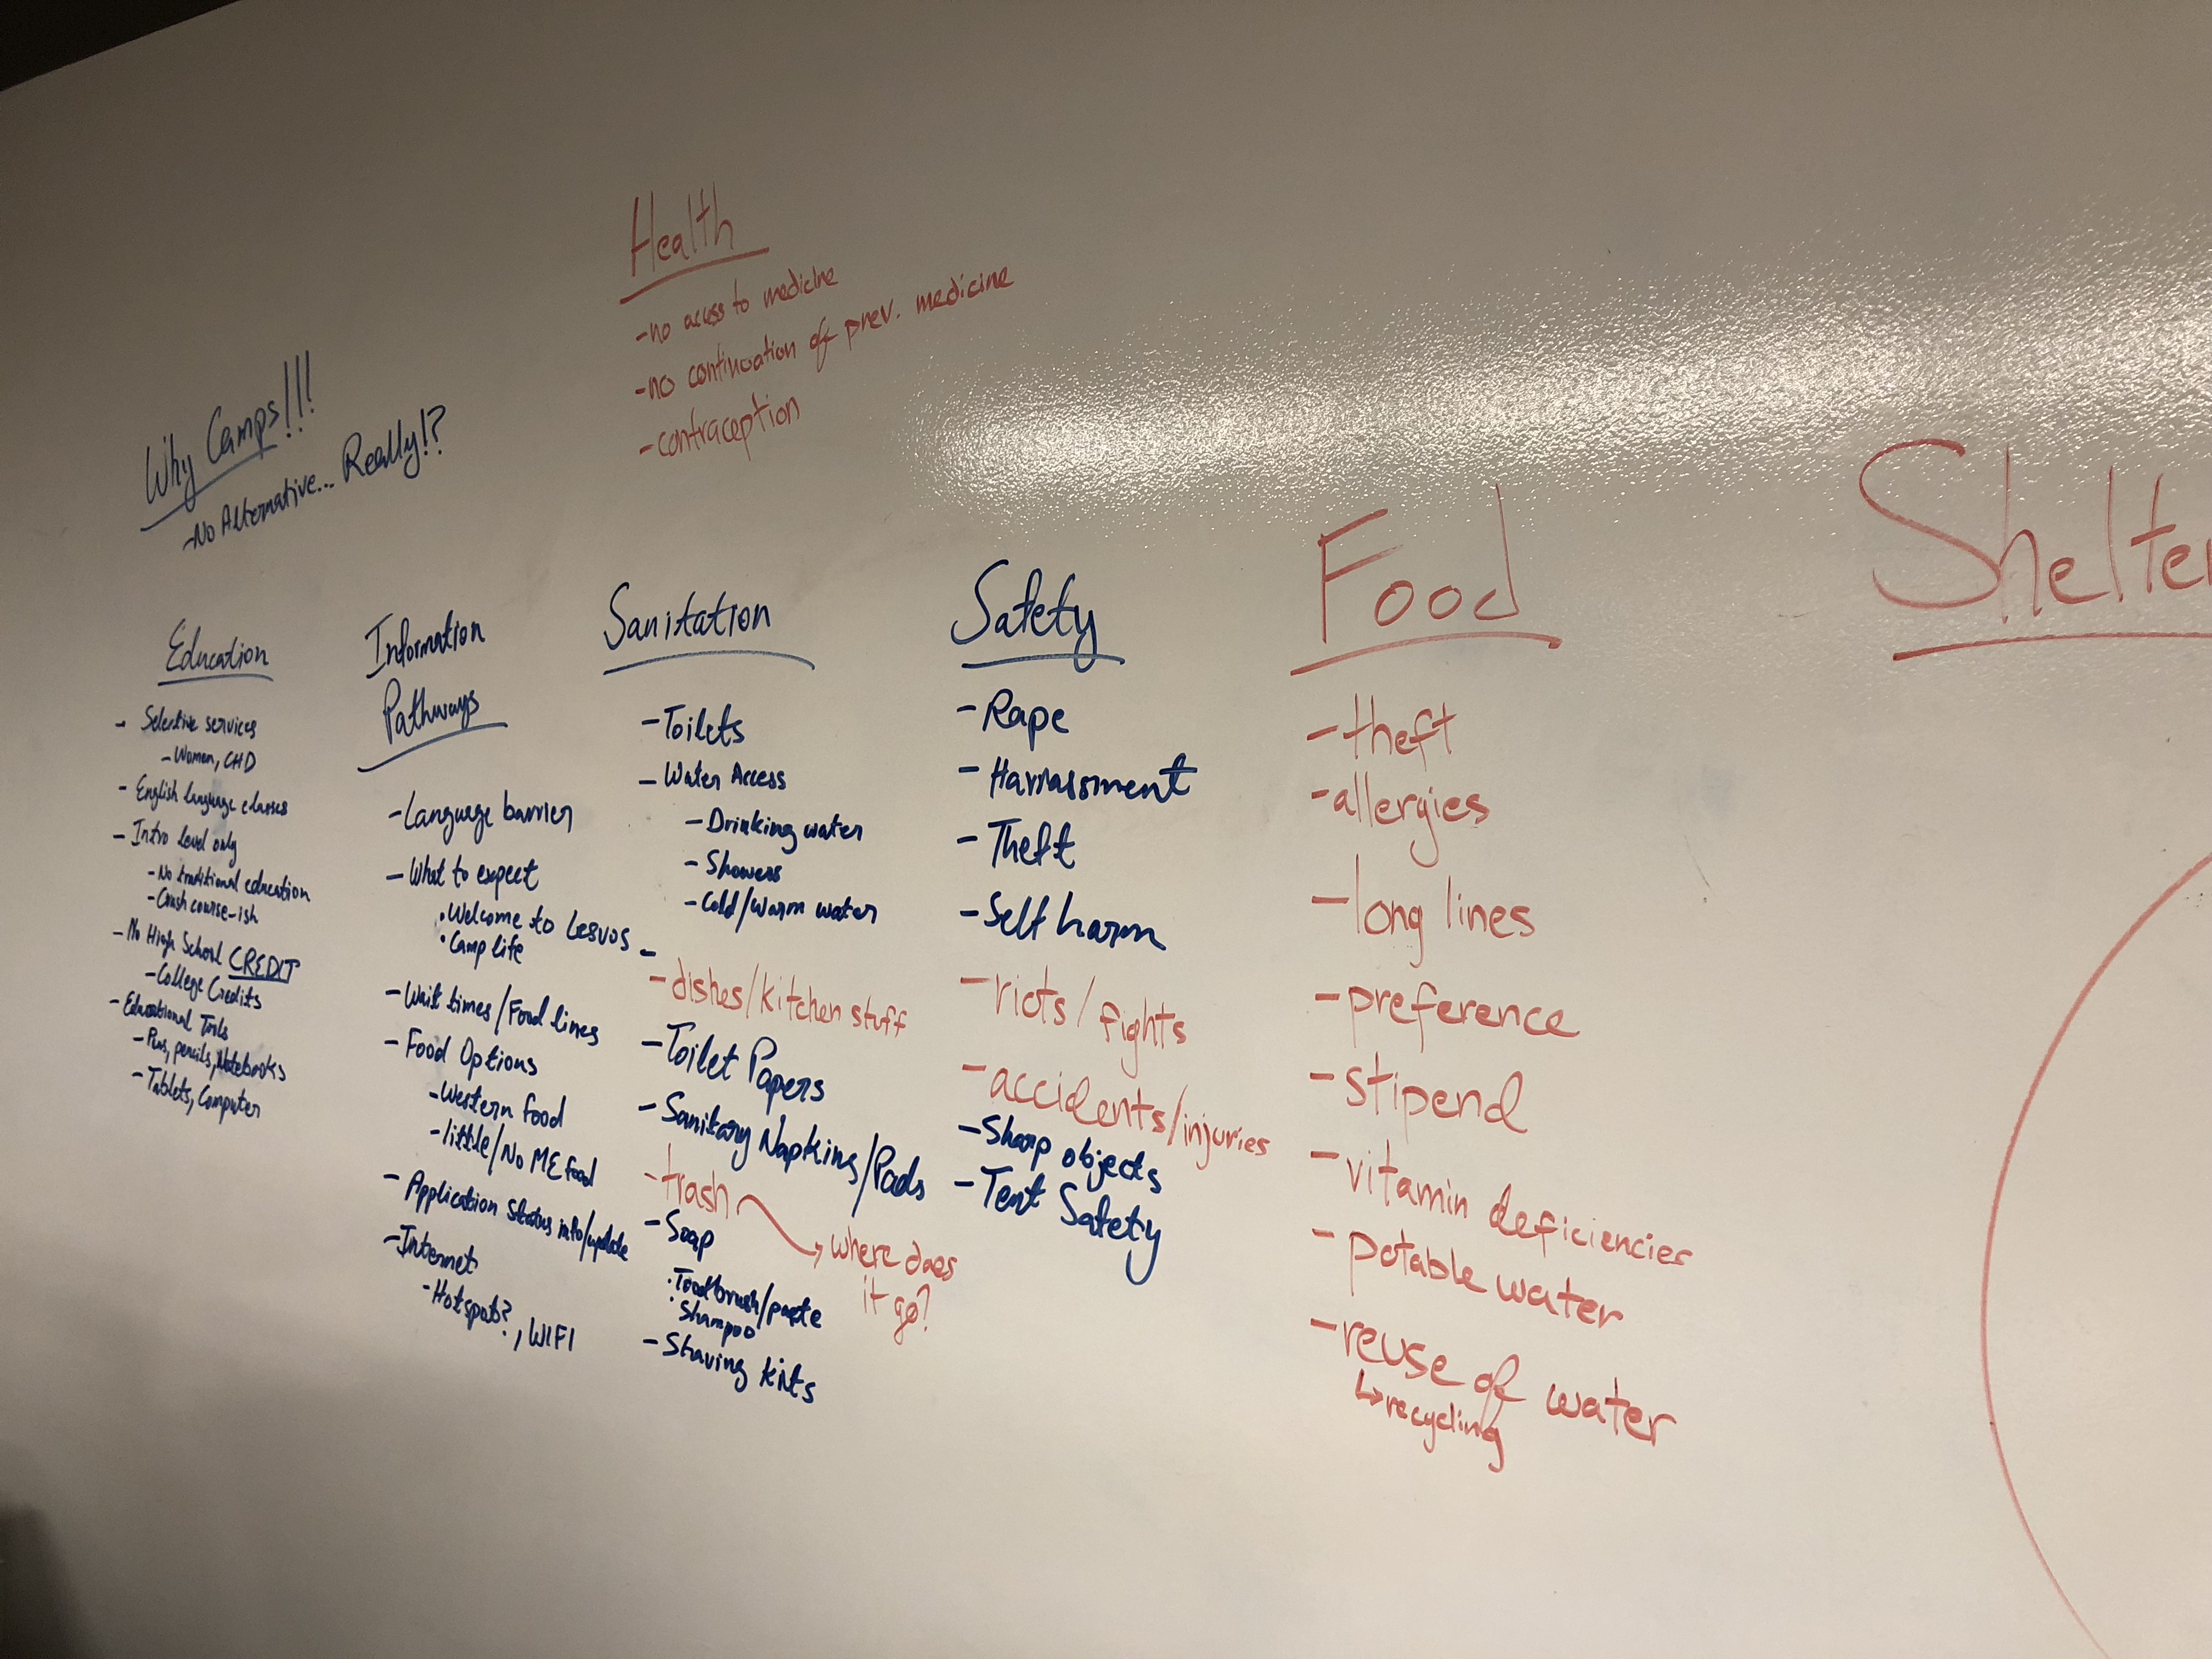 Health
-no access to medicine
-no continuation of prev. medicine
-contraception
Why Camps!!!
-No Alternative... Really!?
Education
- Selective services
- Women, CHD
- English language classes
- Intro level only
- No traditional education
- Crash course-ish
- No High School CREDIT
- College Credits
- Educational Tools
- Pens, pencils, Notebooks
- Tablets, Computer
Information
Pathways
- Language barrier
- What to expect
• Welcome to Lesvos
• Camp life
- Wait times/Food lines
- Food Options
- Western food
- little/No ME food
- Application Status info/update
- Internet
- Hotspots?, WIFI
Sanitation
- Toilets
- Water Access
- Drinking water
- Showers
- Cold/Warm water
-
- dishes/kitchen stuff
- Toilet Papers
- Sanitary Napkins/Pads
- trash
where does
it go?
- Soap
• Toothbrush/paste
• Shampoo
- Shaving kits
Safety
- Rape
- Harrassment
- Theft
- Self harm
- riots/fights
- accidents/injuries
- Sharp objects
- Tent Safety
Food
- theft
- allergies
- long lines
- preference
- stipend
- vitamin deficiencies
- potable water
- reuse of water
↳ recycling
Shelter